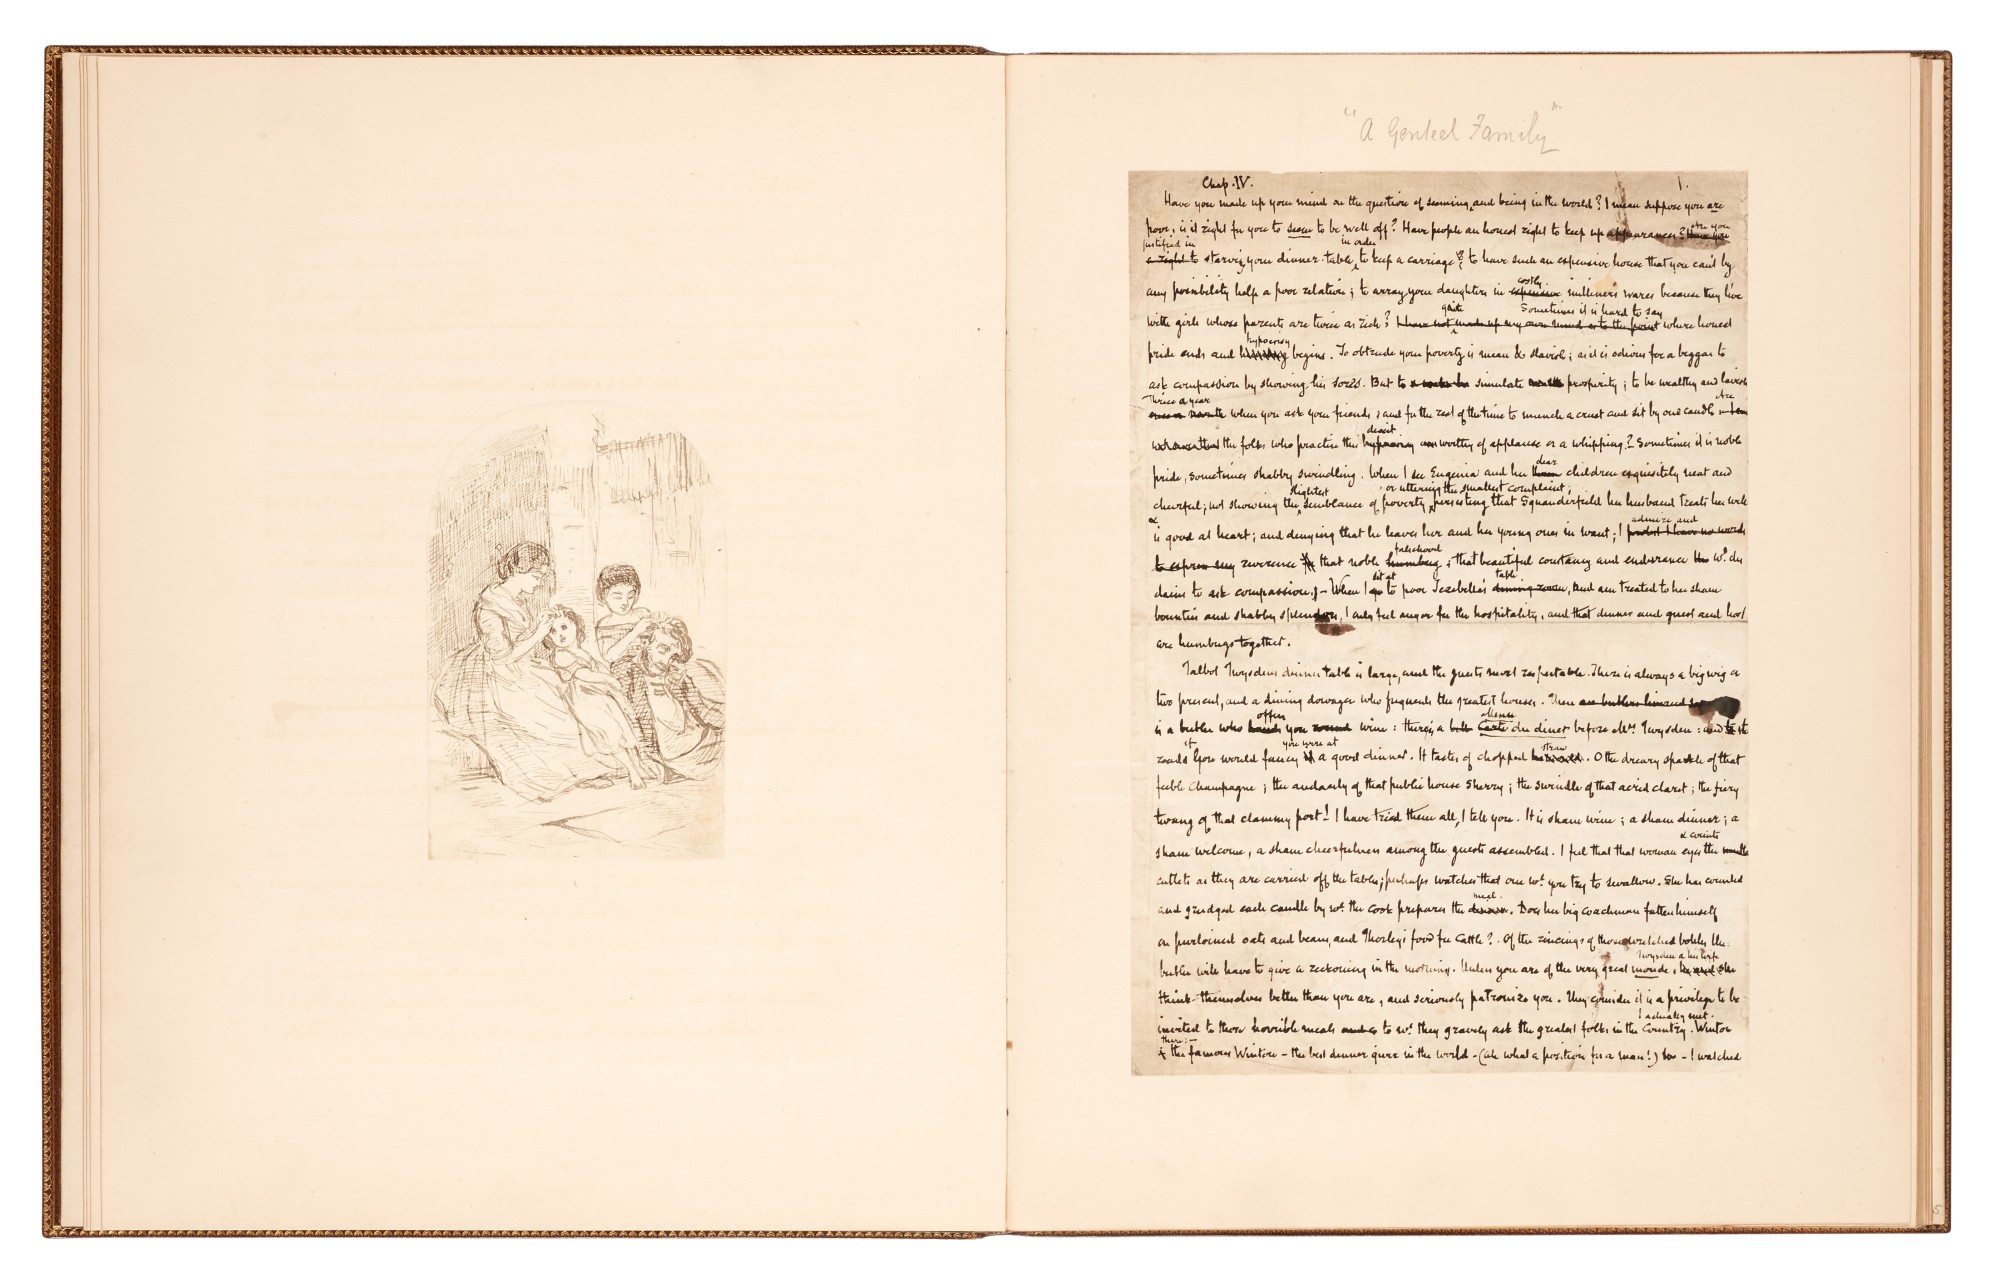 "A Genteel Family"
Chap. IV. 1.
Have you made up your mind on the question of seeming, and being in the world? I mean suppose you are
poor, is it right for you to seem to be well off? Have people an honest right to keep up appearances? Have you
are you
justified in in order
a right to starving your dinner-table, to keep a carriage? to have such an expensive house that you can't by
costly
any possibility help a poor relation; to array your daughters in expensive milliners wares because they live
quite Sometimes it is hard to say
with girls whose parents are twice as rich? I have not made up my own mind as to the point where honest
hypocrisy
pride ends and begins. To obtrude your poverty is mean & slavish; as it is odious for a beggar to
ask compassion by showing his sores. But to simulate prosperity; to be wealthy and lavish
Thrice a year Are
once a month when you ask your friends; and for the rest of the time to munch a crust and sit by one candle
deceit
the folks who practise this hypocrisy worthy of applause or a whipping? Sometimes it is noble
dear
pride, sometimes shabby swindling. When I see Eugenia and her children exquisitely neat and
slightest or uttering the smallest complaint;
cheerful; not showing the semblance of poverty, persisting that Squanderfield her husband treats her well
&
admire and
is good at heart; and denying that he leaves her and her young ones in want; I protest I have no words
falsehood
to express my reverence that noble humbug; that beautiful constancy and endurance wh. dis
sit at table
dains to ask compassion. - When I go to poor Jezebella's dining room, and am treated to her sham
bounties and shabby splendor, I only feel anger for the hospitality, and that dinner and guest and host
are humbugs together.
Talbot Twysdens dinner table is large, and the guests most respectable. There is always a big wig or
two present, and a dining dowager who frequents the greatest houses. There are butlers
offers Menu
is a butler who hands you round wine: there's a Carte du diner before Mrs. Twysden: and to
if you were at straw
reads you would fancy a good dinner. It tastes of chopped. O the dreary sparkle of that
feeble champagne; the audacity of that public house sherry; the swindle of that acrid claret; the fiery
twang of that clammy port! I have tried them all, I tell you. It is sham wine; a sham dinner; a
& counts
sham welcome, a sham cheerfulness among the guests assembled. I feel that that woman eyes the
cutlets as they are carried off the table; perhaps watches that one wh. you try to swallow. She has counted
meal
and grudged each candle by wh. the cook prepares the dinner. Does her big coachman fatten himself
on purloined oats and beans, and Thorley's food for Cattle? Of the rincings of those wretched bottles the
Twysden & his wife
butler will have to give a reckoning in the morning. Unless you are of the very great monde, he and she
think themselves better than you are, and seriously patronize you. They consider it is a privilege to be
I actually met
invited to those horrible meals to wh. they gravely ask the greatest folks in the Country. Winton
there: -
the famous Winton - the best dinner giver in the world - (ah what a position for a man!) - I watched
5